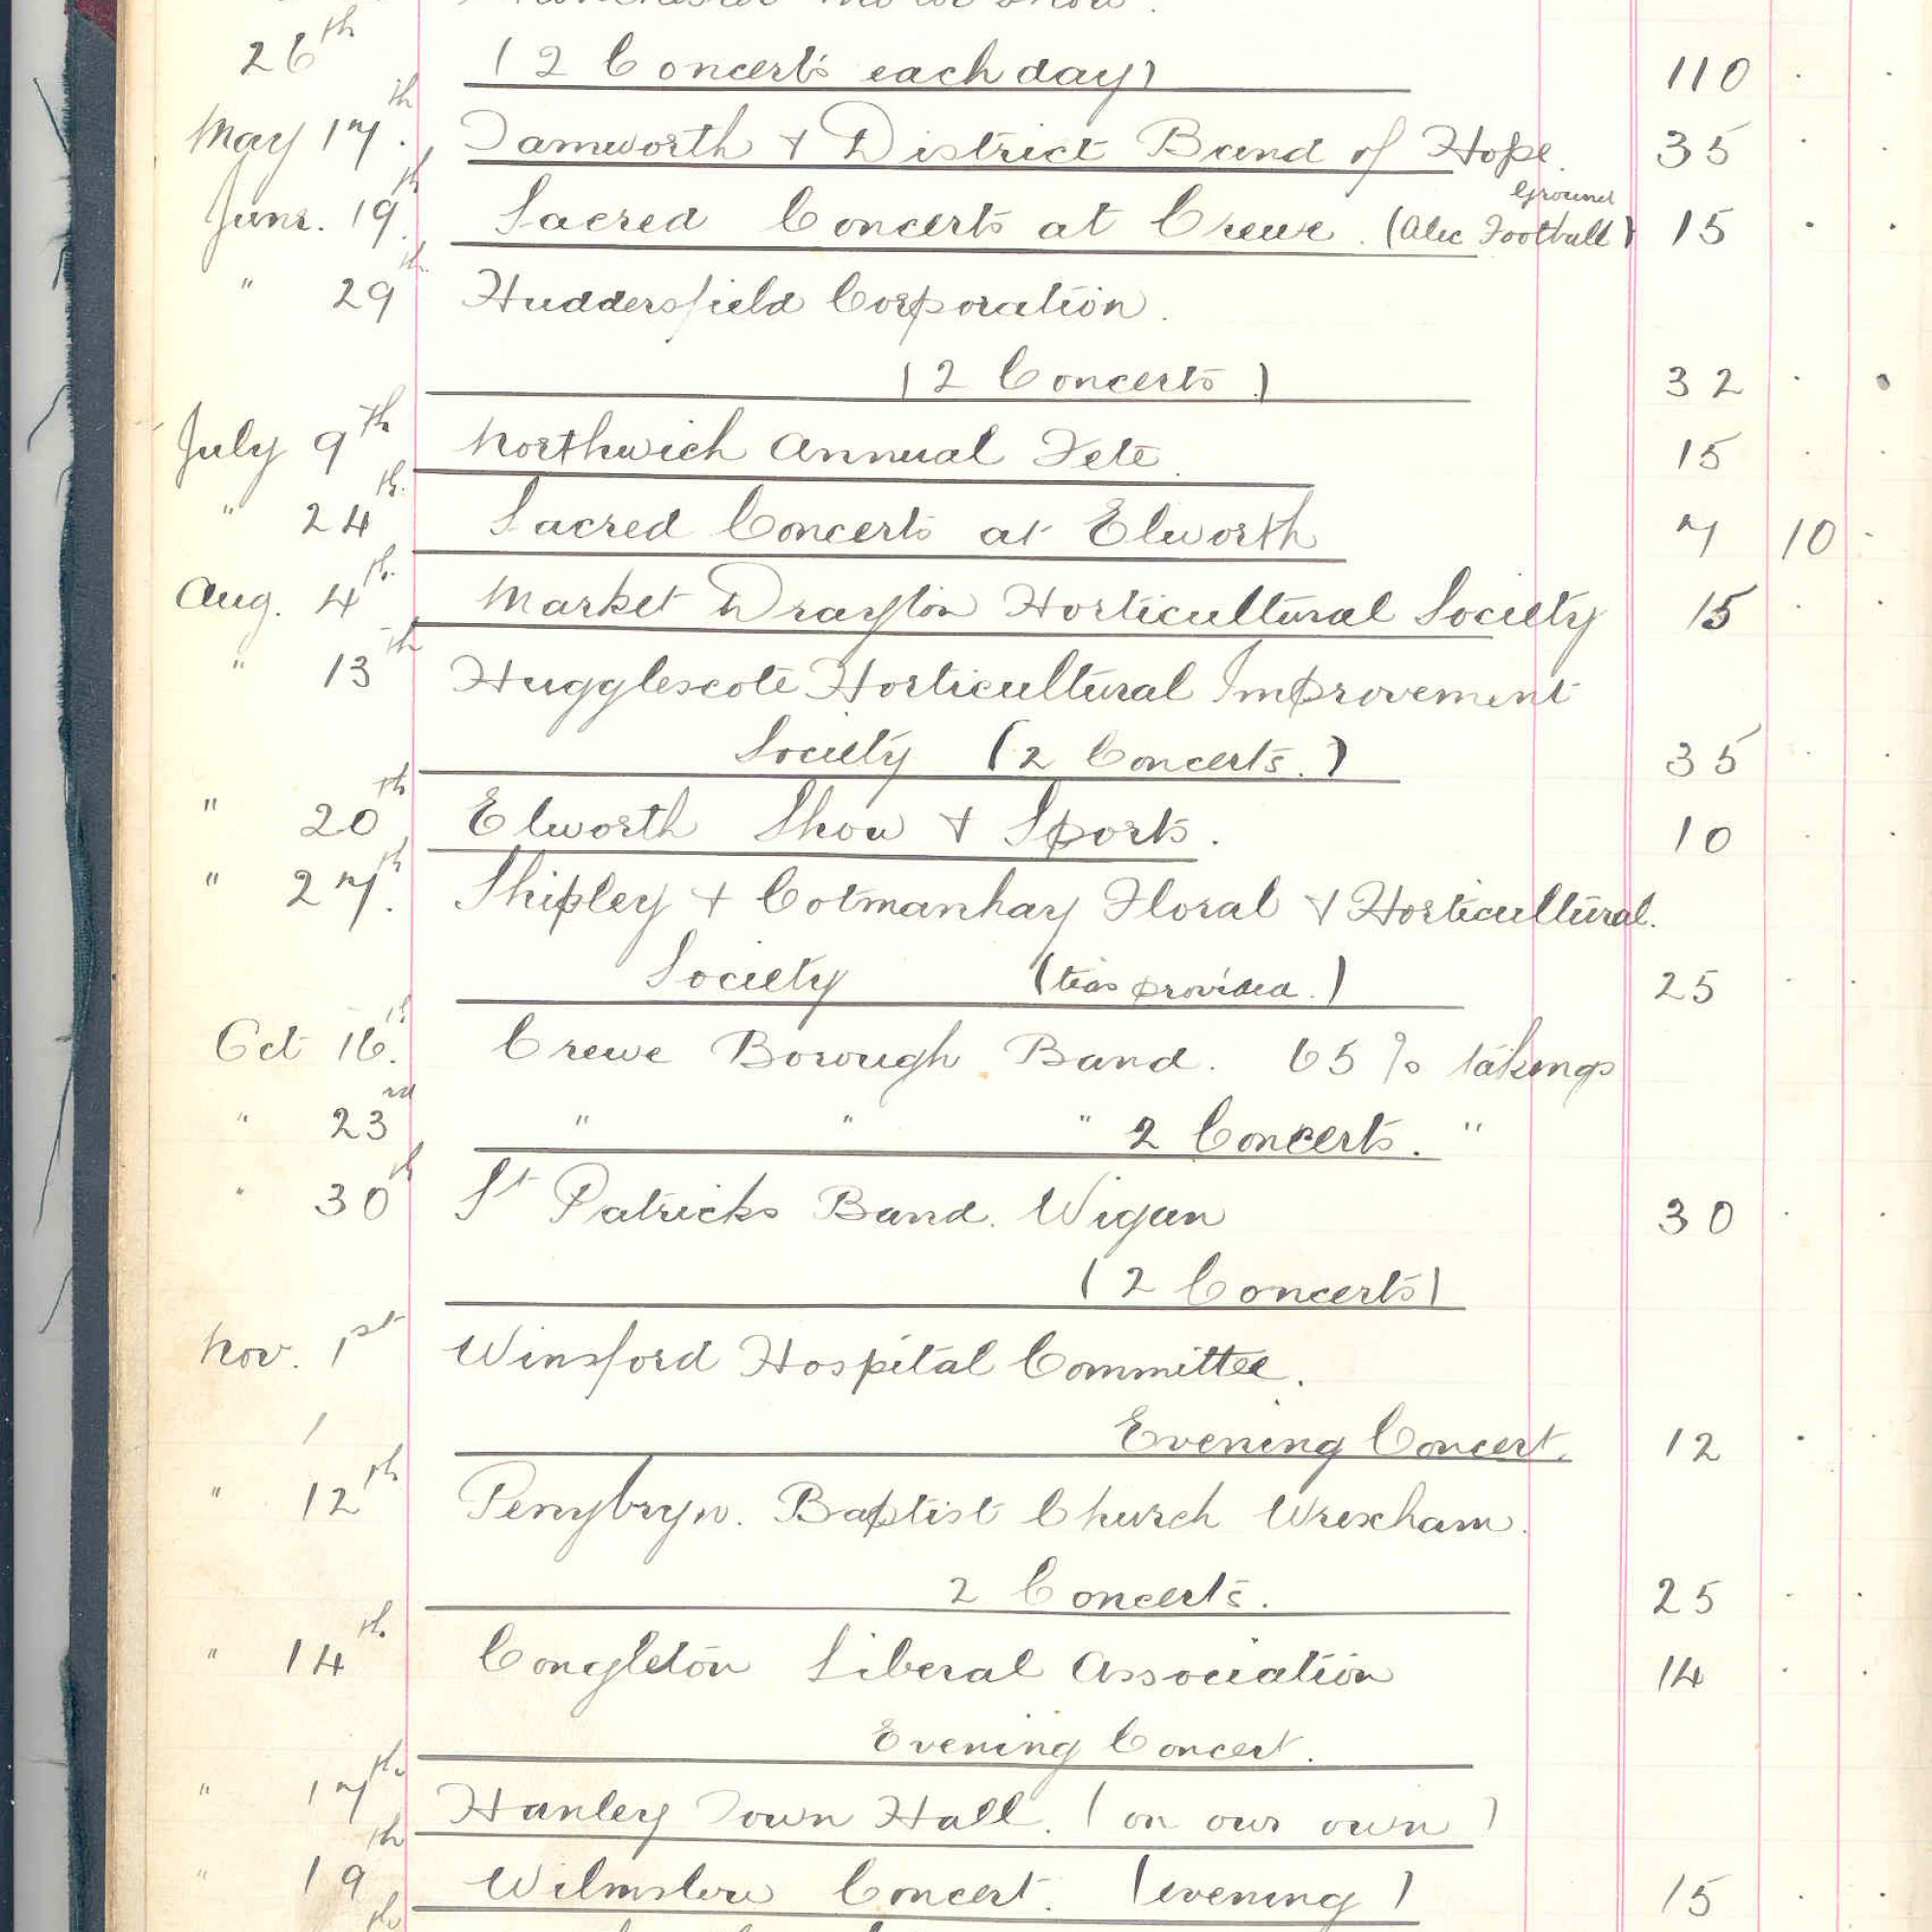 Motor Show.
26th (2 Concerts each day) 110 . .
May 17th. Tamworth + District Band of Hope. 35 . .
Ground
June. 19th. Sacred Concerts at Crewe. (Alec Football) 15 . .
" 29th. Huddersfield Corporation.
(2 Concerts.) 32 . .
July 9th Northwich Annual Fete. 15 . .
" 24th. Sacred Concerts at Elworth 7 10 .
Aug. 4th. Market Drayton Horticultural Society 15 . .
" 13th Hugglescote Horticultural Improvement
Society (2 Concerts.) 35 . .
" 20th Elworth Show + Sports. 10 . .
" 27th. Shipley + Cotmanhay Floral + Horticultural.
Society (teas provided.) 25 . .
Oct 16th. Crewe Borough Band. 65 % takings
" 23rd " " " 2 Concerts. "
" 30th St Patricks Band. Wigan 30 . .
(2 Concerts)
Nov. 1st Winsford Hospital Committee.
Evening Concert. 12 . .
" 12th Penybryn. Baptist Church Wrexham.
2 Concerts. 25 . .
" 14th. Congleton Liberal Association 14 . .
Evening Concert.
" 17th. Hanley Town Hall. (on our own)
" 19th Wilmslow Concert. (evening) 15 . .